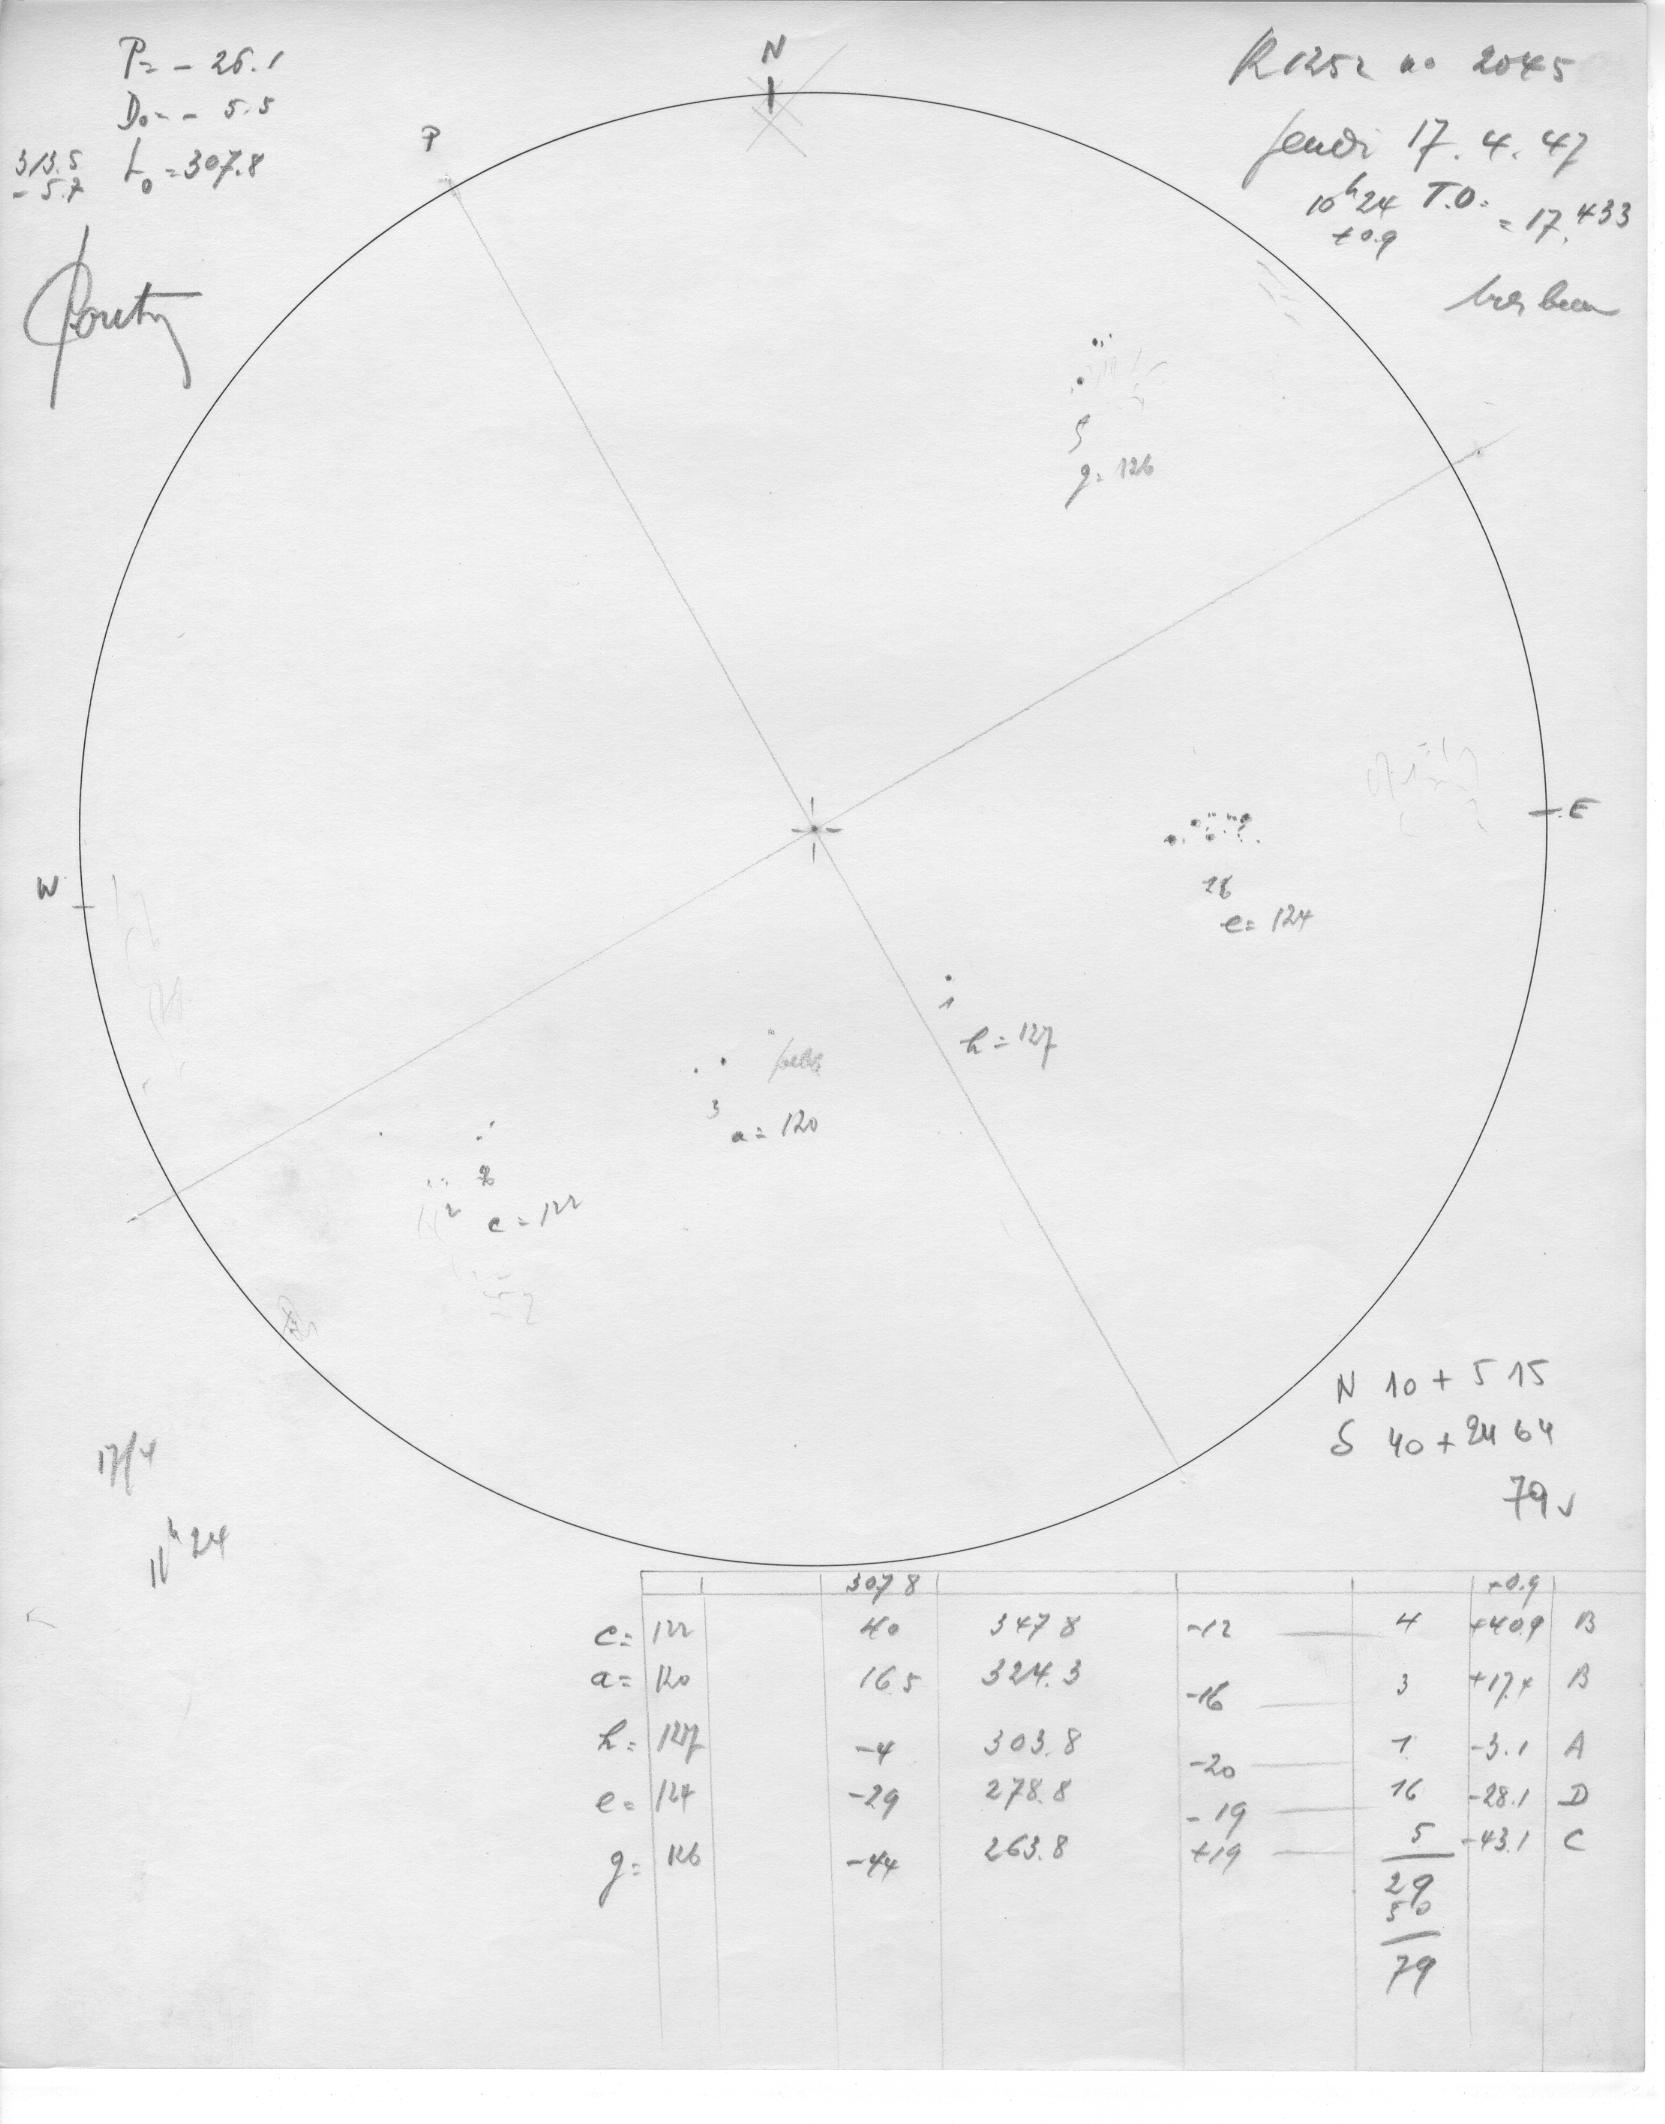 P = - 26.1
D₀ = - 5.5
313.5
- 5.7
L₀ = 307.8
N
P
no 2045
Jeudi 17. 4. 47
10ʰ24 T.O. = 17,433
+0.9
5
g = 126
E
W
16
e = 124
1
h = 127
3
a = 120
2
2
c = 122
N 10 + 5 15
S 40 + 24 64
79
17/4
11ʰ 24
307 8 +0.9
c = 122 40 347 8 -12 4 +40.9 B
a = 120 16 5 324.3 -16 3 +17.4 B
h = 127 -4 303.8 -20 1 -3.1 A
e = 124 -29 278.8 -19 16 -28.1 D
g = 126 -44 263.8 +19 5 -43.1 C
29
50
79